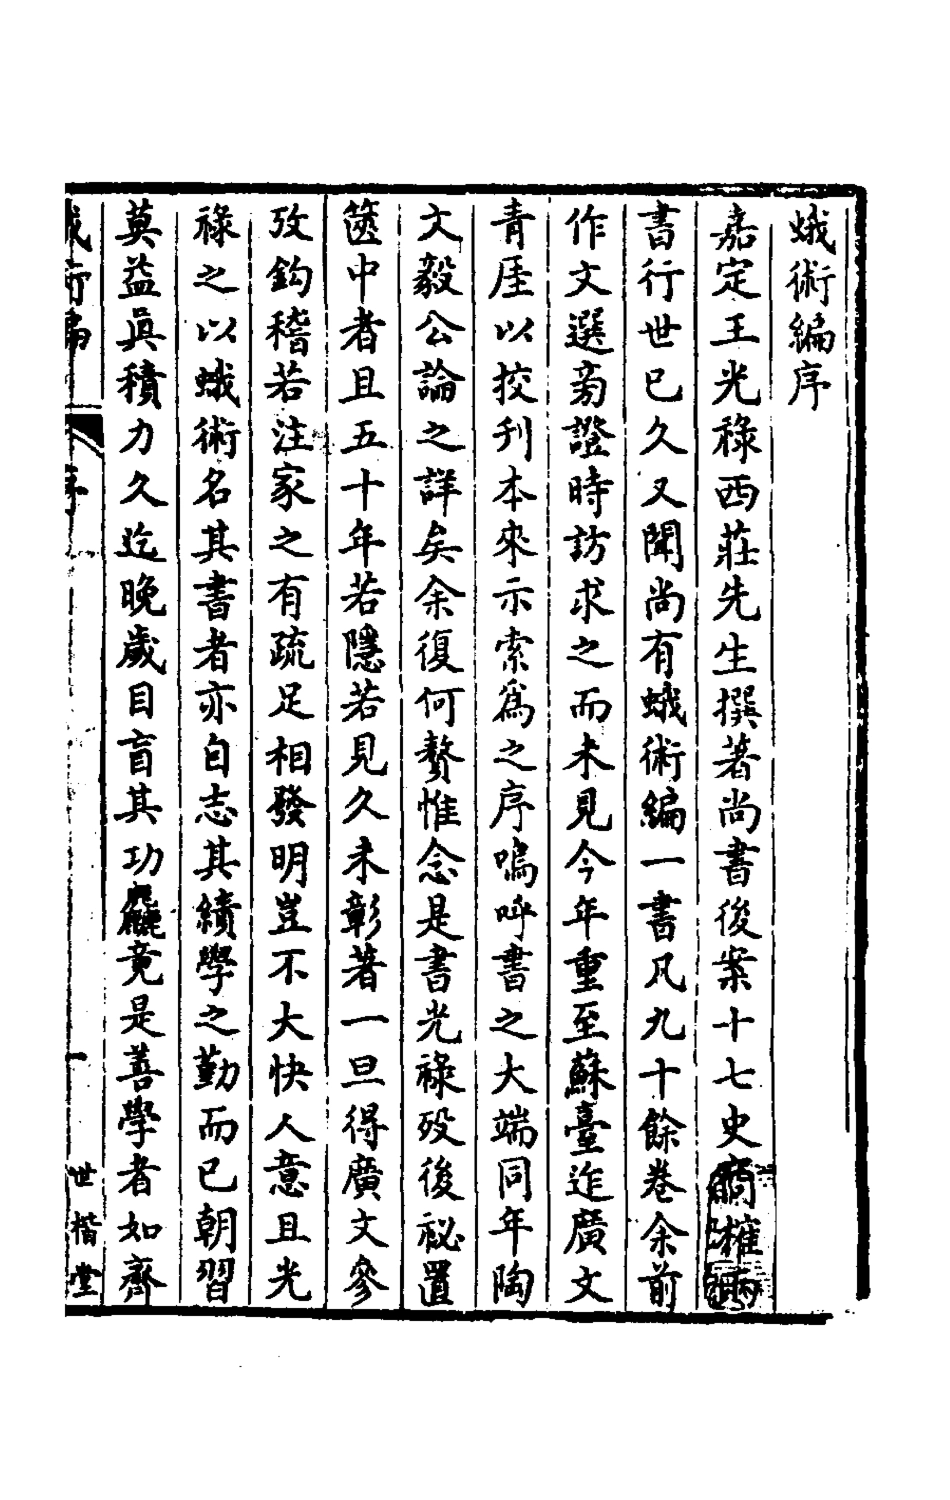 蛾術編序
嘉定王光祿西莊先生撰著尚書後案十七史商榷兩
書行世已久又聞尚有蛾術編一書凡九十餘卷余前
作文選旁證時訪求之而未見今年重至蘇臺迮廣文
青厓以挍刋本來示索為之序嗚呼書之大端同年陶
文毅公論之詳矣余復何贅惟念是書光祿歿後祕置
篋中者且五十年若隱若見久未彰著一旦得廣文參
攷鈎稽若注家之有疏足相發明豈不大快人意且光
祿之以蛾術名其書者亦自志其績學之勤而已朝習
莫益眞積力久迄晚歲目盲其功麤竟是善學者如齊
蛾術編
序
一
世楷堂